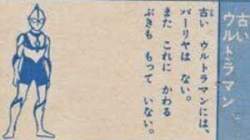 古い
ウルトラマン
古い ウルトラマンには、
バーリヤは ない。
また これに かわる
ぶきも もって いない。